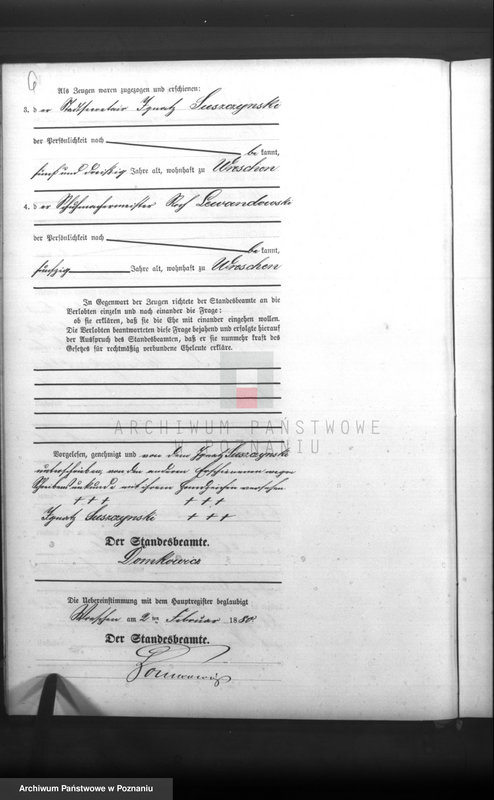 6
Als Zeugen waren zugezogen und erschienen:
3. der Stadtsecretair Ignatz Suszczynski
der Persönlichkeit nach
be kannt,
fünf und dreißig Jahre alt, wohnhaft zu Wreschen
4. der Schuhmachermeister Roch Lewandowski
der Persönlichkeit nach
be kannt,
fünfzig Jahre alt, wohnhaft zu Wreschen
In Gegenwart der Zeugen richtete der Standesbeamte an die
Verlobten einzeln und nach einander die Frage:
ob sie erklären, daß sie die Ehe mit einander eingehen wollen.
Die Verlobten beantworteten diese Frage bejahend und erfolgte hierauf
der Ausspruch des Standesbeamten, daß er sie nunmehr kraft des
Gesetzes für rechtmäßig verbundene Eheleute erkläre.
ARCHIWUM PAŃSTWOWE
W POZNANIU
Vorgelesen, genehmigt und von dem Ignatz Suszczynski
unterschrieben, von den anderen Erschienenen wegen
Schreibensunkunde mit ihrem Handzeichen versehen
+ + + + + +
Ignatz Suszczynski + + +
Der Standesbeamte.
Domkowicz
Die Uebereinstimmung mit dem Hauptregister beglaubigt
Wreschen am 2ten Februar 1880
Der Standesbeamte.
Archiwum Państwowe w Poznaniu